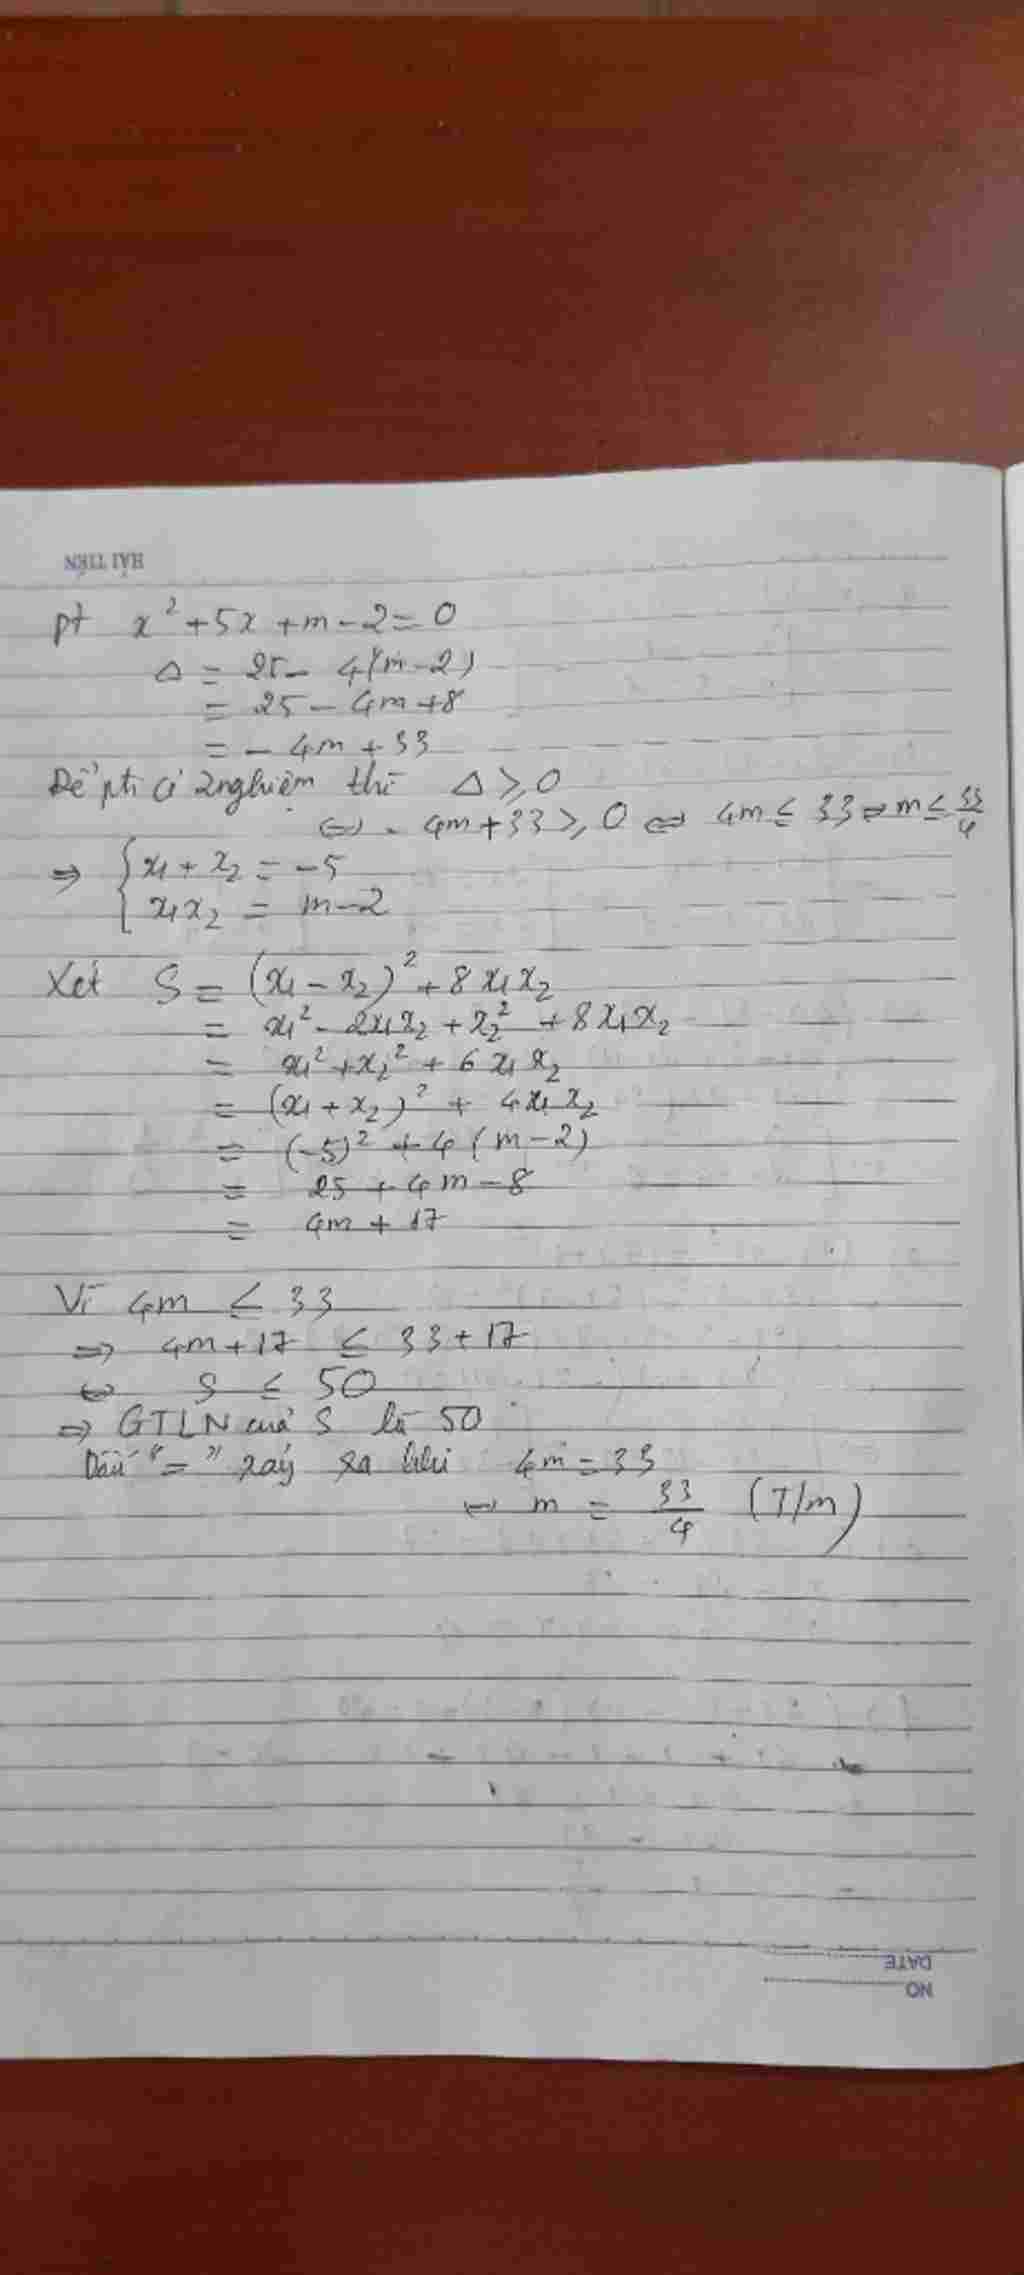 HẢI TIẾN
pt x² + 5x + m - 2 = 0
Δ = 25 - 4(m - 2)
= 25 - 4m + 8
= - 4m + 33
Để pt có 2 nghiệm thì Δ ≥ 0
⇔ - 4m + 33 ≥ 0 ⇔ 4m ≤ 33 ⇔ m ≤ 33/4
⇒ { x₁ + x₂ = -5
x₁x₂ = m - 2
Xét S = (x₁ - x₂)² + 8x₁x₂
= x₁² - 2x₁x₂ + x₂² + 8x₁x₂
= x₁² + x₂² + 6x₁x₂
= (x₁ + x₂)² + 4x₁x₂
= (-5)² + 4(m - 2)
= 25 + 4m - 8
= 4m + 17
Vì 4m ≤ 33
⇒ 4m + 17 ≤ 33 + 17
⇔ S ≤ 50
⇒ GTLN của S là 50
Dấu "=" xảy ra khi 4m = 33
⇔ m = 33/4 (T/m)
DATE
NO